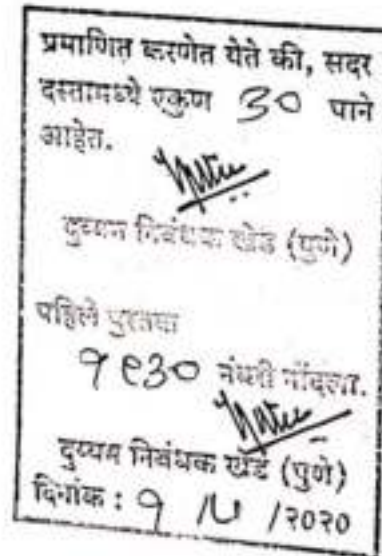 प्रमाणित करणेत येते की, सदर
दस्तामध्ये एकुण 30 पाने
आहेत.
दुय्यम निबंधक खेड (पुणे)
पहिले पुस्तका
१९30 नंबरी नोंदला.
दुय्यम निबंधक खेड (पुणे)
दिनांक : १ / /२०२०